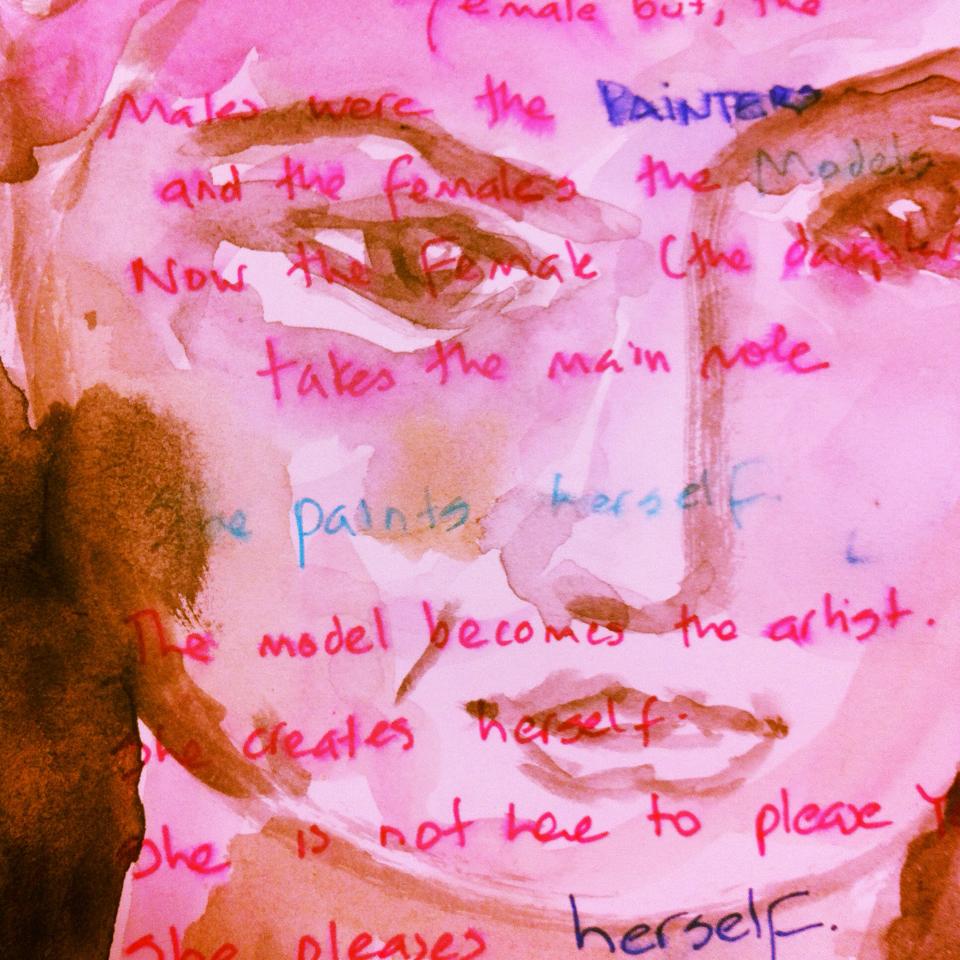 female but, the
Males were the PAINTERS
and the females the Models
Now the female (the daughter
takes the main role
She paints herself.
The model becomes the artist.
She creates herself.
She is not here to please Y
She pleases herself.